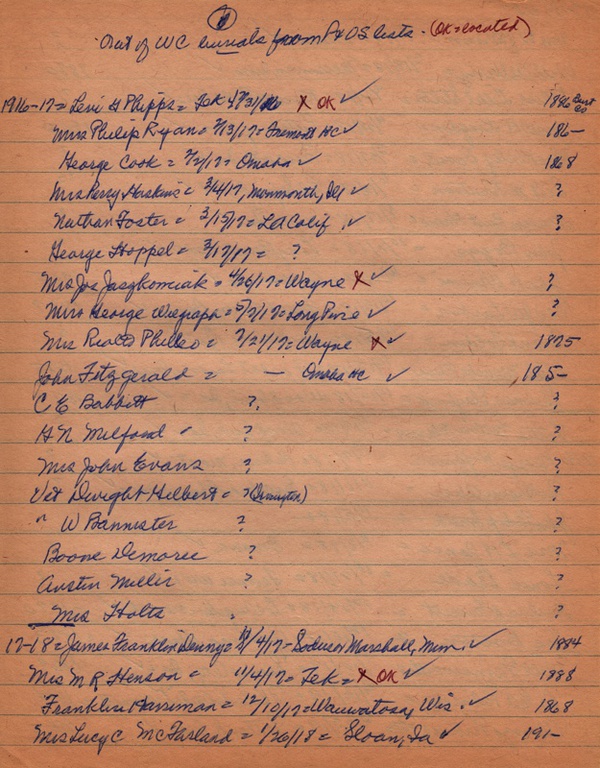 ①
Out of WC burials from P&OS lists. (OK=located)
1916-17= Levi H Phipps= Tek X OK ✓ 1886
Mrs Philip Ryan= 2/13/17= Fremont HC ✓ 186-
George Cook = 2/2/17= Omaha ✓ 1868
Mrs Perry Hoskins= 3/4/17, Monmonth, Ill ✓ ?
Nathan Foster = 3/15/17= LA Calif. ✓ ?
George Hoppel = 3/17/17= ?
Mrs Jos = 4/26/17= Wayne X ✓ ?
Mrs George = 5/2/17= Long Pine ✓ ?
Mrs Philleo = 7/21/17= Wayne X ✓ 1875
John Fitzgerald = - Omaha HC ✓ 185-
C E Babbitt ? ?
H N Milford " ? ?
Mrs John Evans ? ?
Vet Dwight Hilbert = ? ?
" W Bannister ? ?
Boone Demoree ? ?
Austin Miller ? ?
Mrs Holtz ?
17-18= James Franklin Denny= /4/17= Marshall, Minn. ✓ 1884
Mrs M R Henson = 11/4/17= Tek= X OK ✓ 1888
Franklin Harriman = 12/10/17= Wauwatosa, Wis. ✓ 1868
Mrs Lucy C McFarland = 1/26/18= Sloan, Ia ✓ 191-